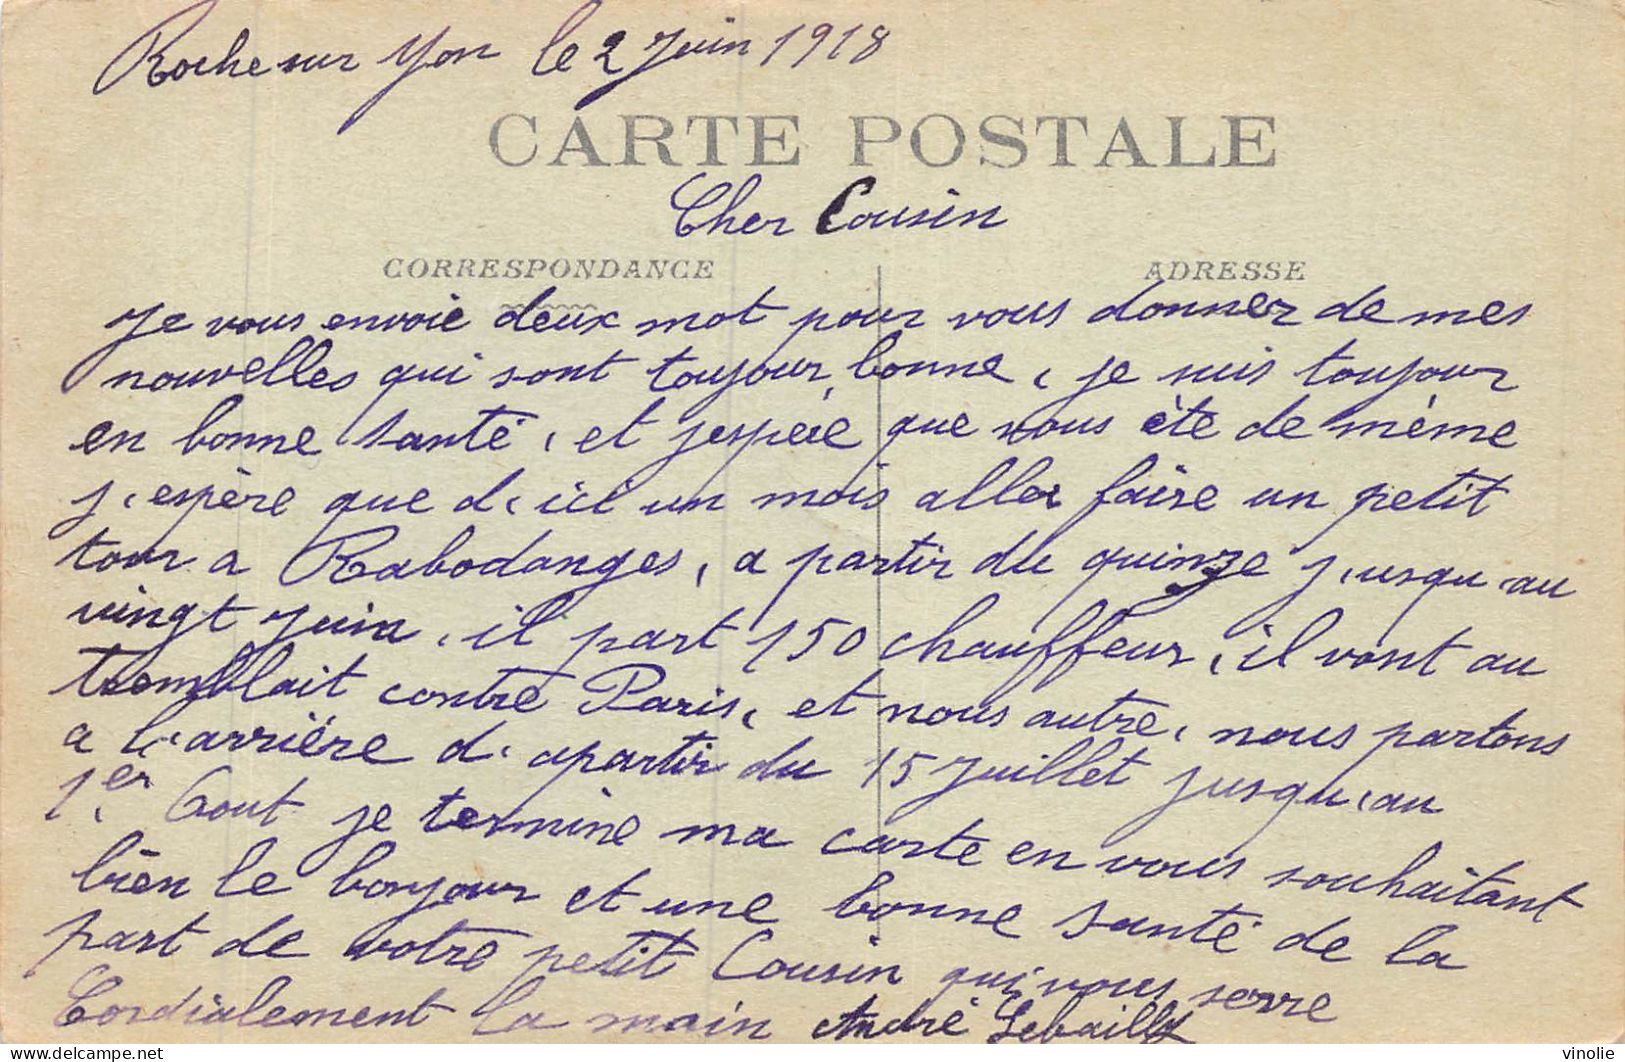 Roche sur Yon le 2 Juin 1918
CARTE POSTALE
Cher Cousin
CORRESPONDANCE
ADRESSE
Je vous envoie deux mot pour vous donner de mes
nouvelles qui sont toujour bonne, je suis toujour
en bonne santé, et jespère que vous ète de mème
j'espère que d'ici un mois aller faire un petit
tour a Rabodanges, a partir du quinze j'usqu'au
vingt juin, il part 150 chauffeur, il vont au
tremblait contre Paris, et nous autre, nous partons
a l'arrière d'apartir du 15 Juillet jusqu'au
1er Aout je termine ma carte en vous souhaitant
bien le bonjour et une bonne santé de la
part de votre petit Cousin qui vous serre
Cordialement la main André Lebailly
delcampe.net
vinolie